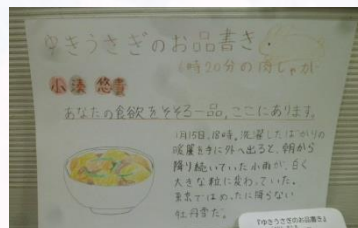 ゆきうさぎのお品書き
6時20分の肉じゃが
小湊 悠貴
あなたの食欲をそそる一品、ここにあります。
1月15日、18時。洗濯したばかりの
暖簾を手に外へ出ると、朝から
降り続いていた小雨が、白く
大きな粒に変わっていた。
東京ではめったに降らない
牡丹雪だ。
『ゆきうさぎのお品書き』